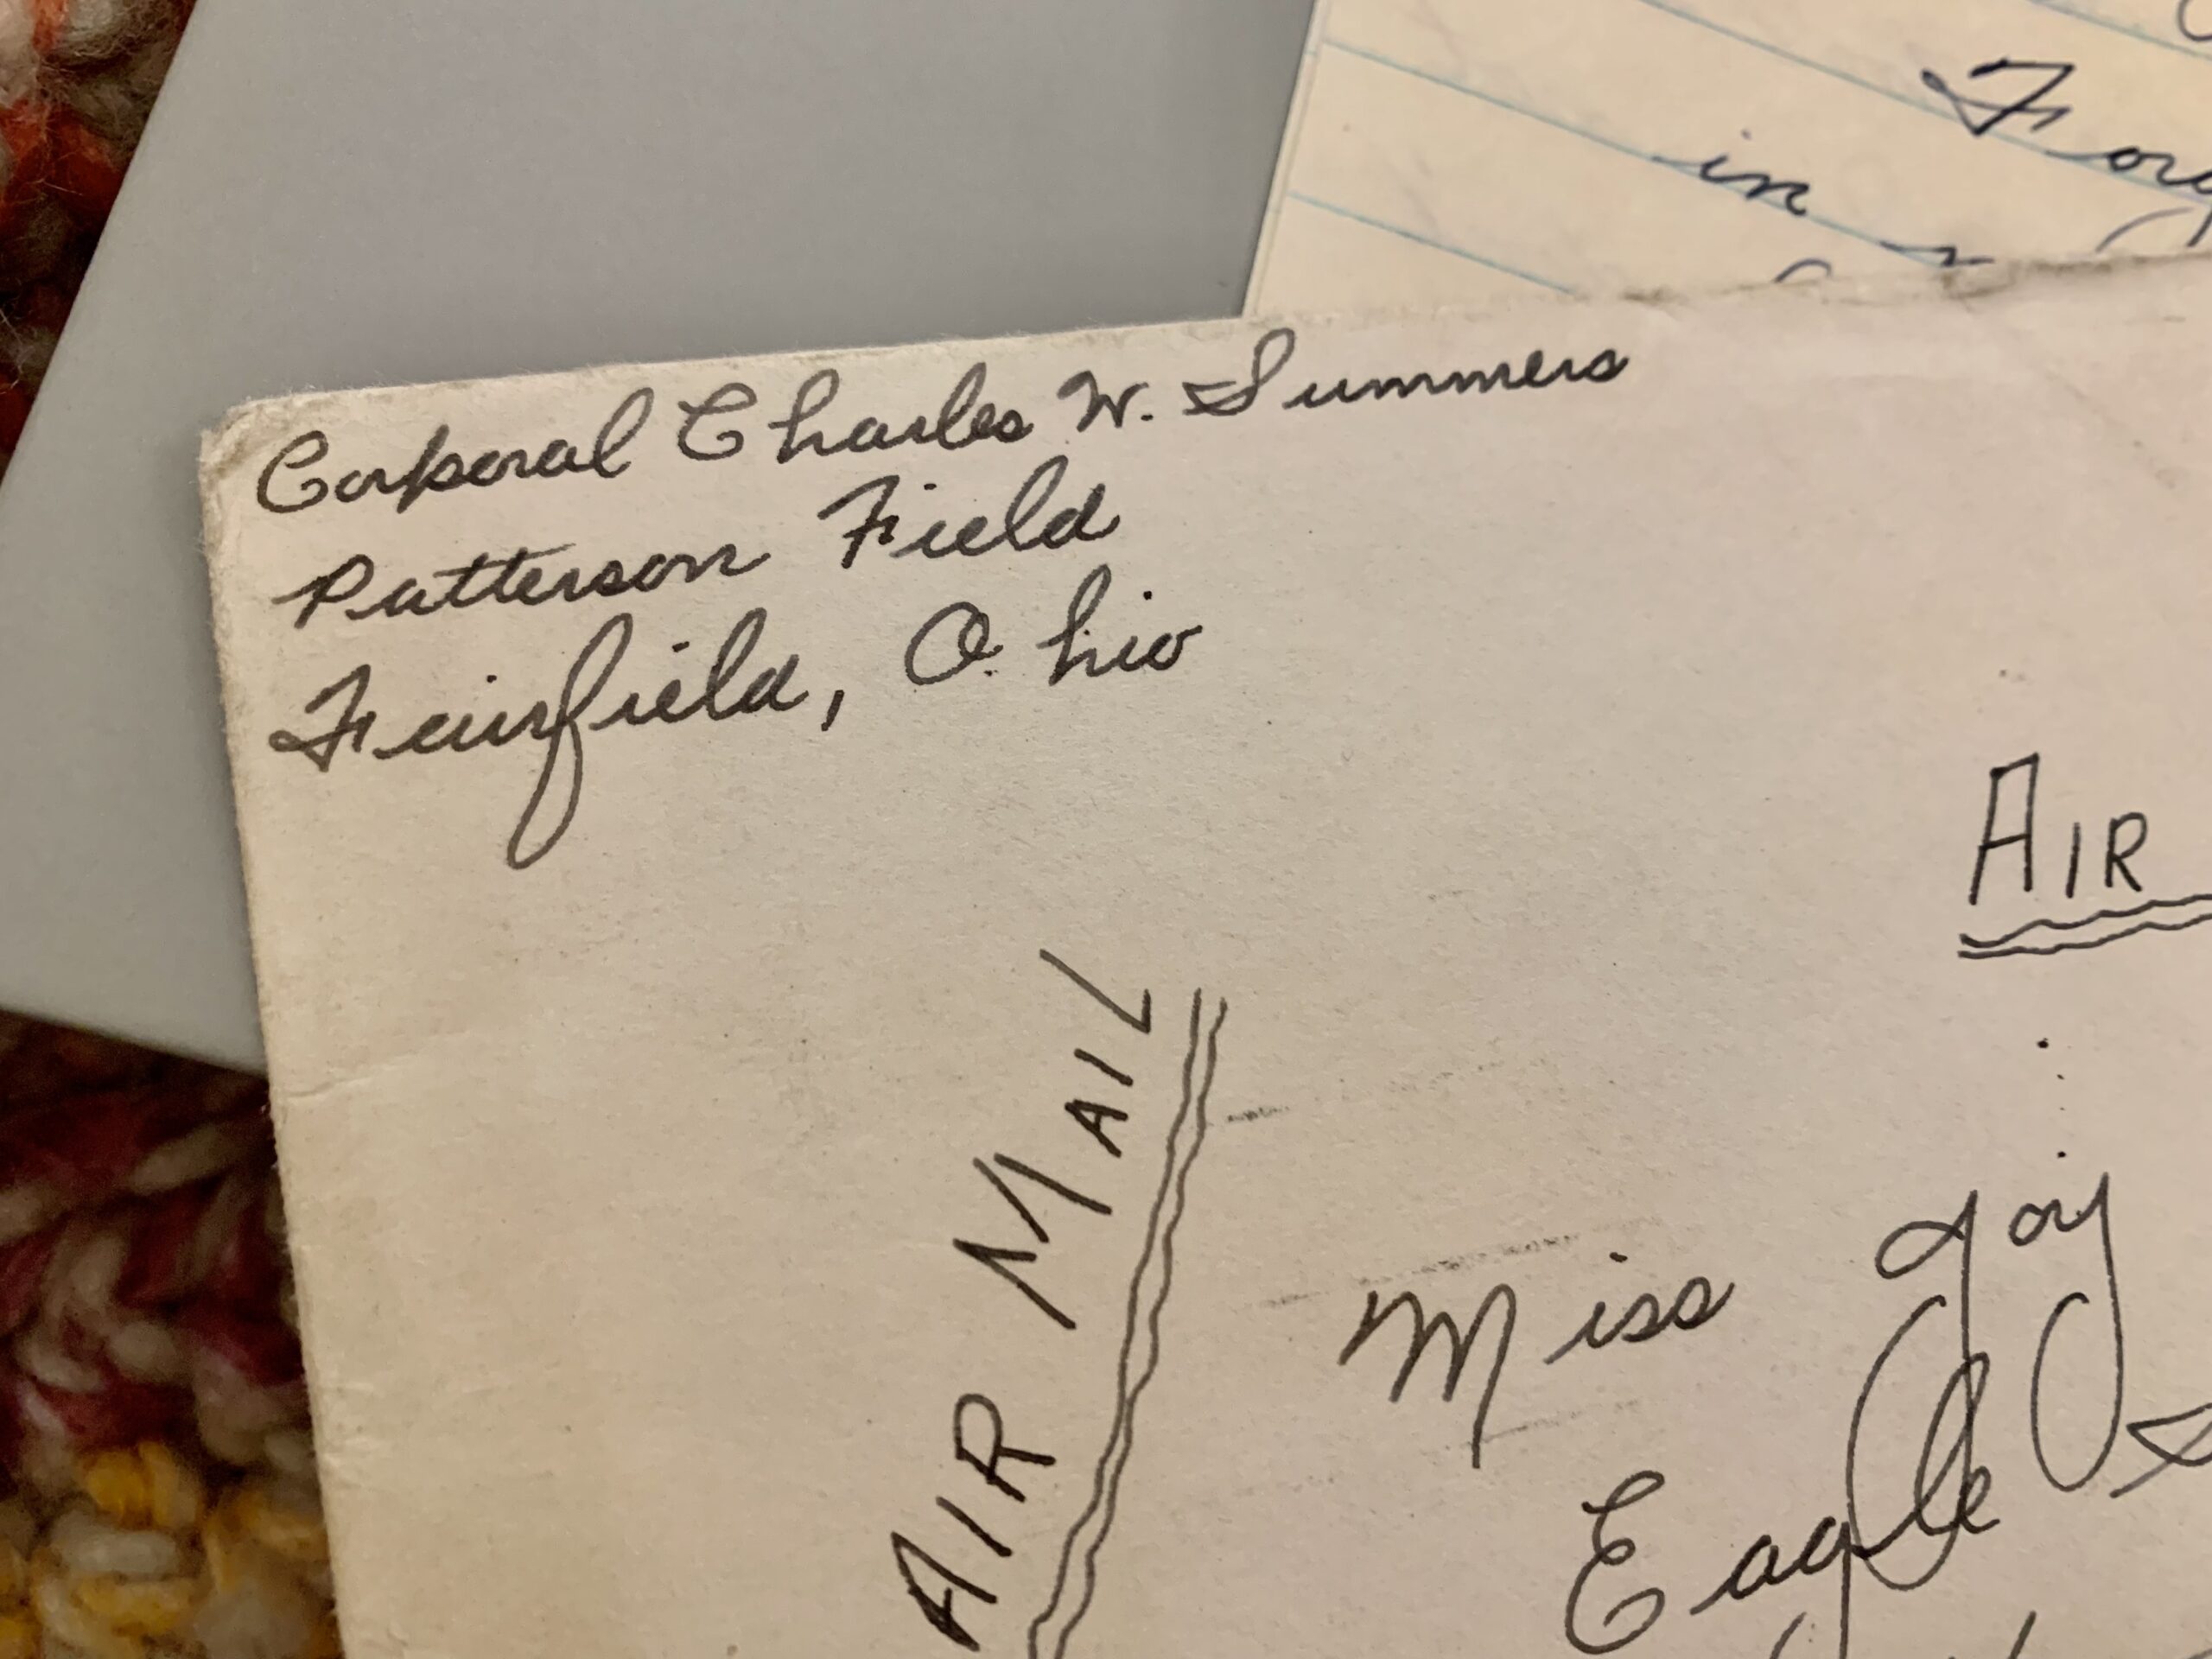 in
Corporal Charles W. Summers
Patterson Field
Fairfield, Ohio
AIR
AIR MAIL
Miss Joy
Eagle